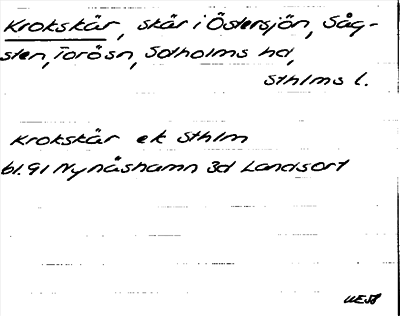 Krokskär, skär i Östersjön, Såg-
sten, Torösn, Sotholms hd,
Sthlms l.
Krokskär ek Sthlm
bl. 91 Nynäshamn 3d Landsort